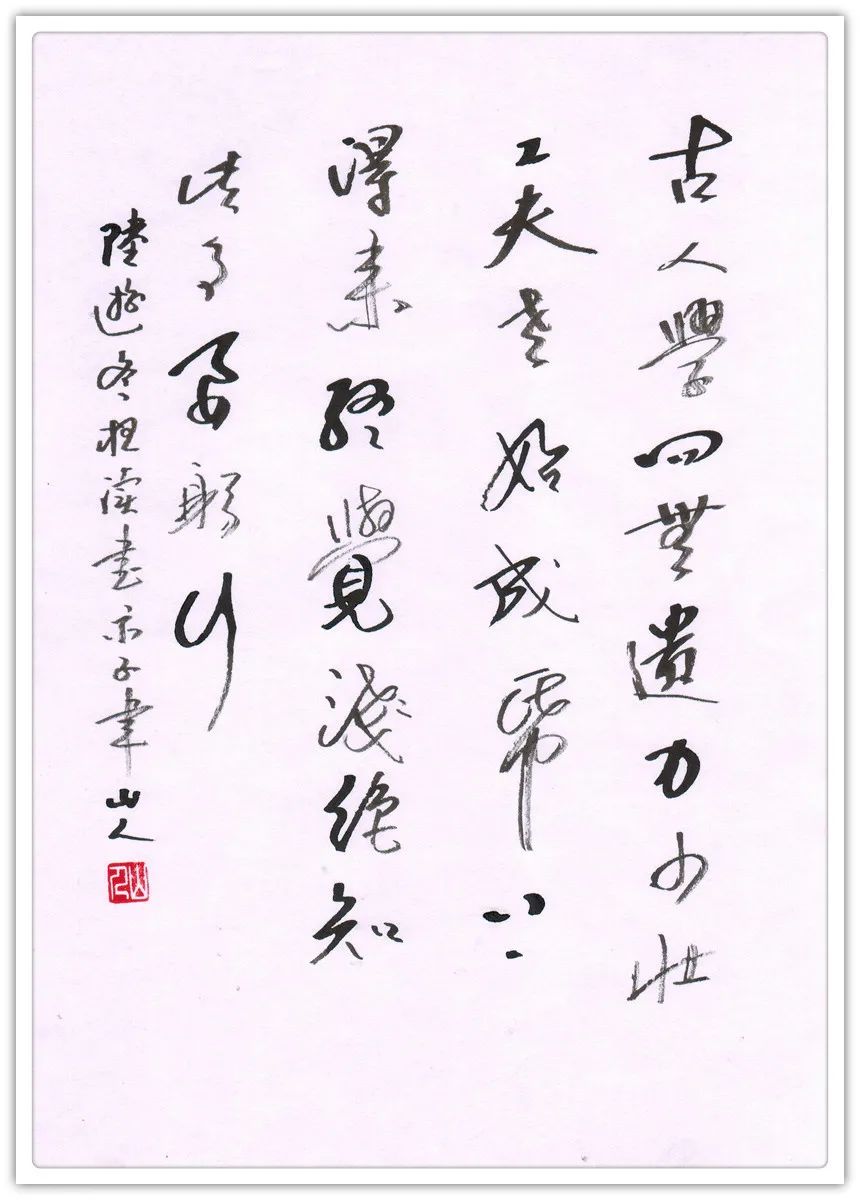 古人學問無遺力少壯
工夫老始成帋上
得来終覺淺絕知
此事要躬行
陸遊冬夜讀書示子聿山人
山人